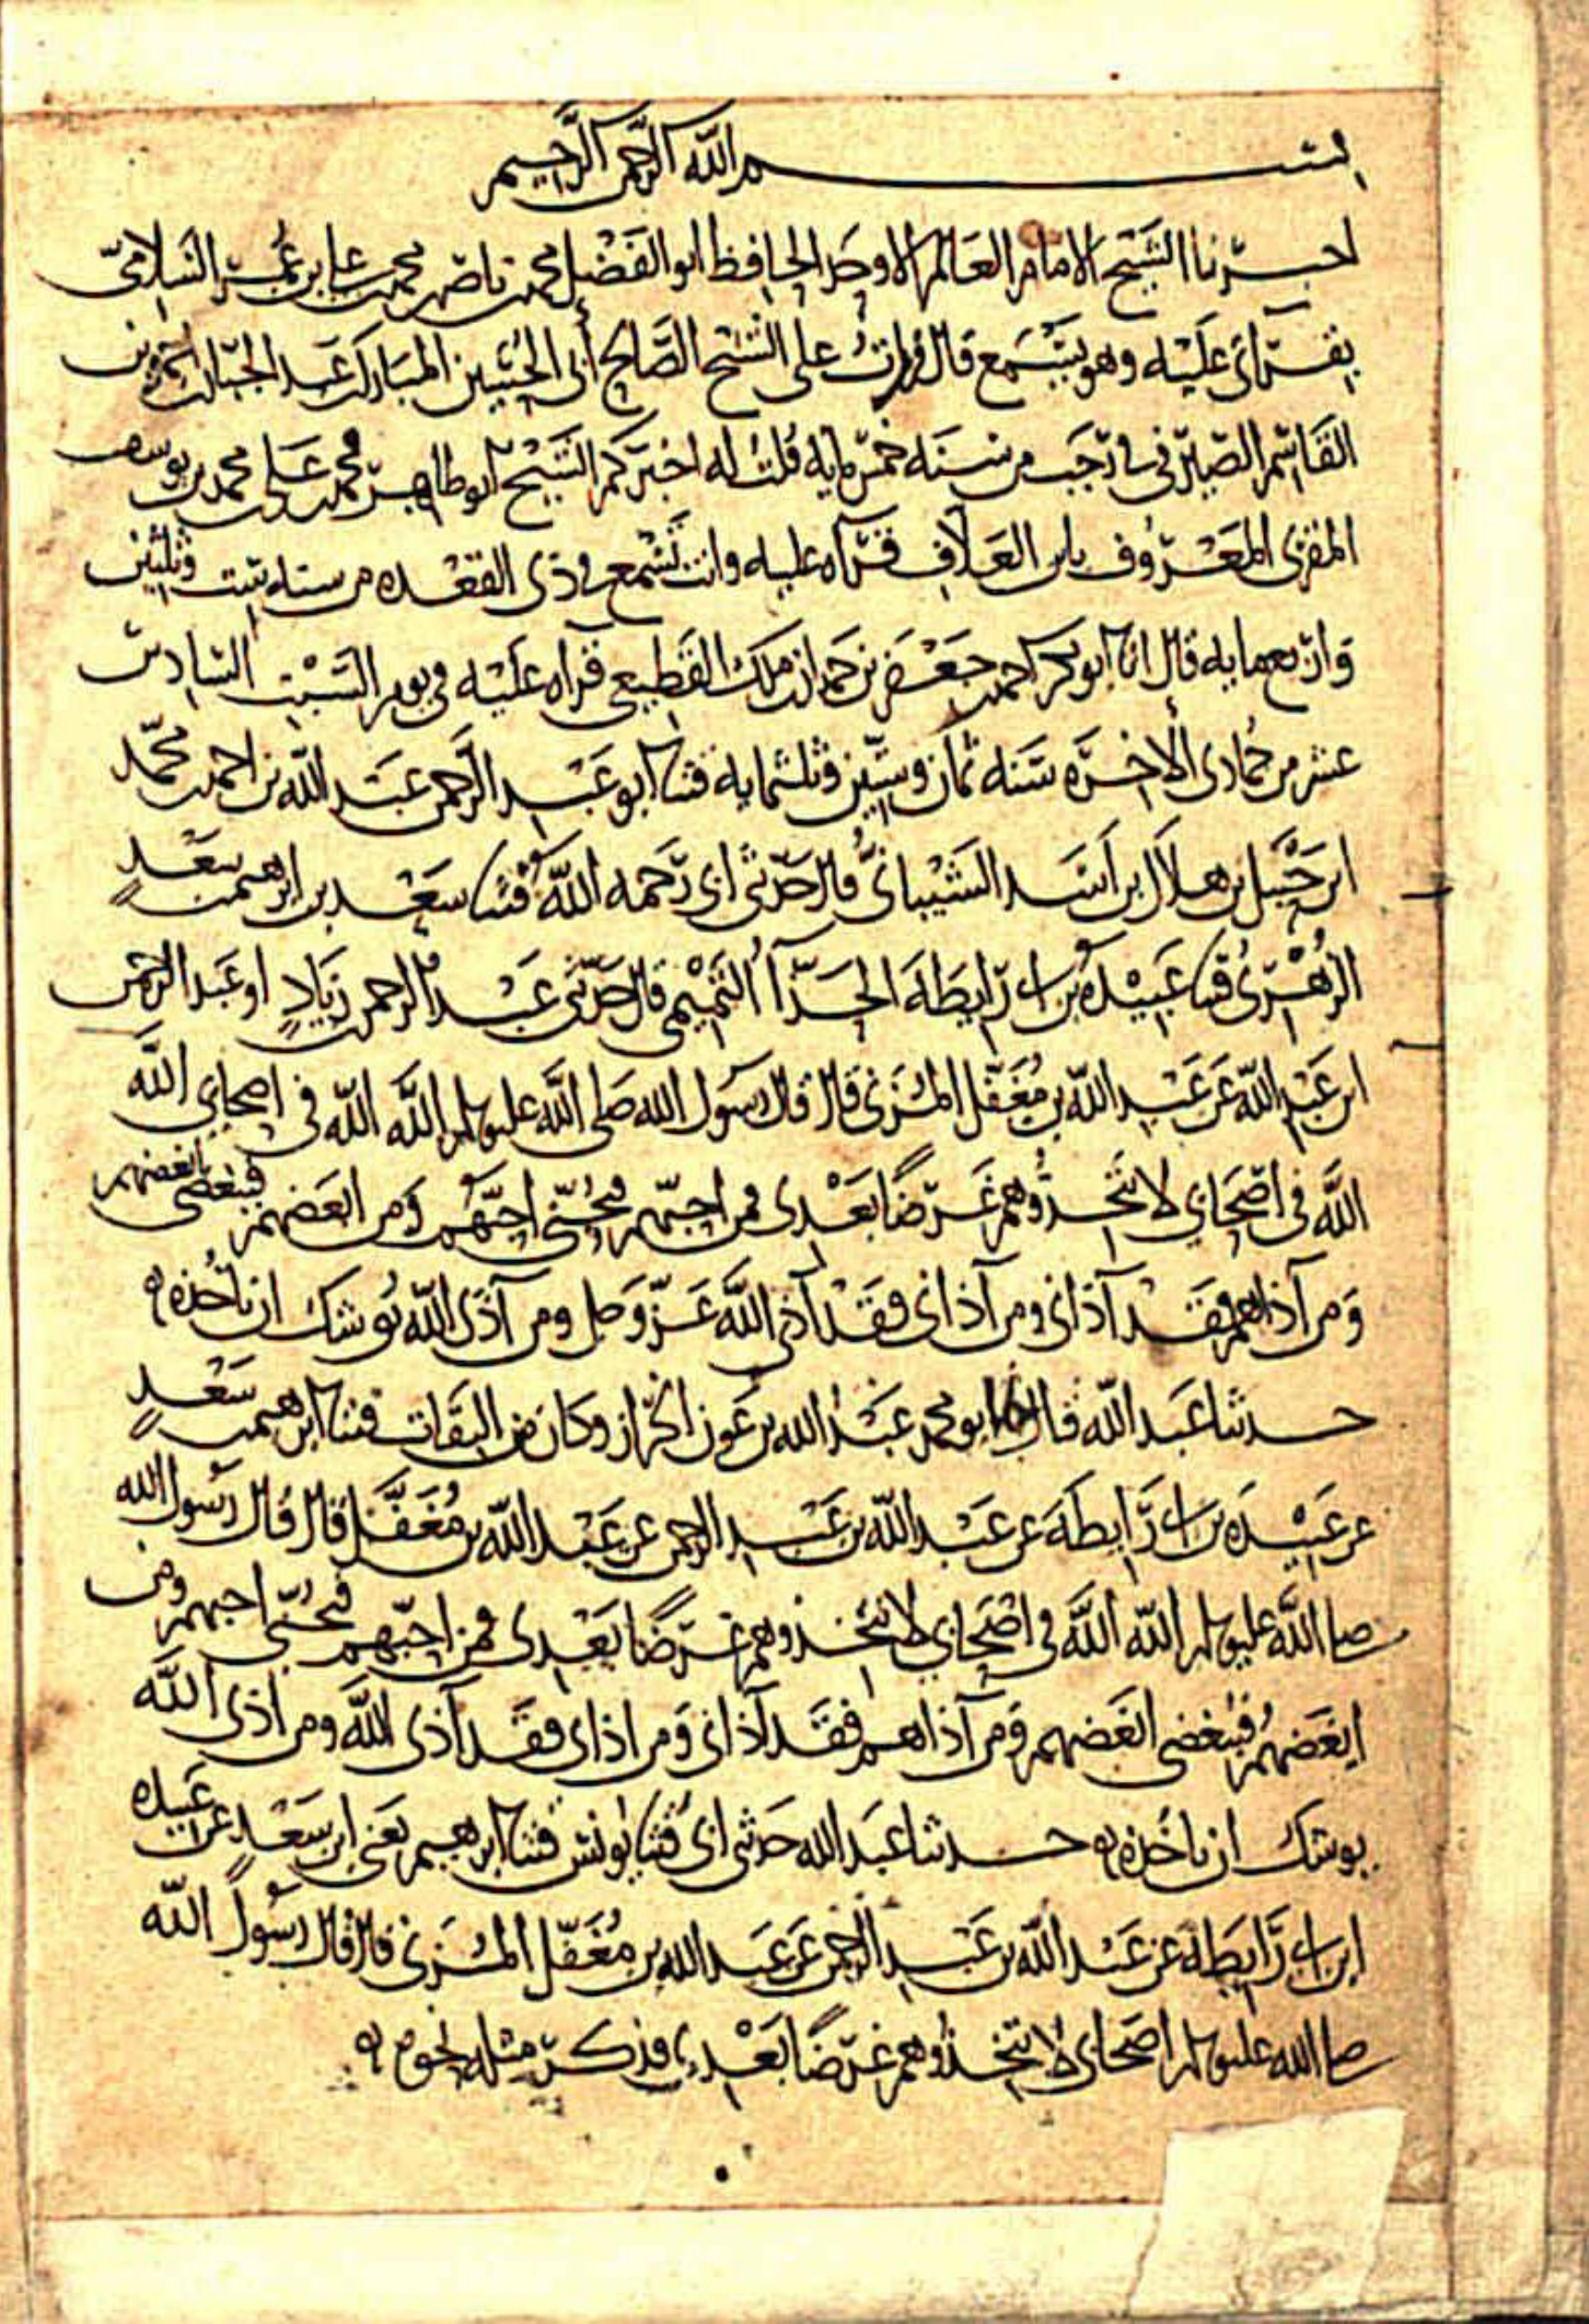 بسم الله الرحمن الرحيم
اخبرنا الشيخ الامام العالم الاوحد الحافظ ابو الفضل محمد بن ناصر بن محمد بن علي بن عمر السلامي
بقراتي عليه وهو يسمع قال قرات على الشيخ الصالح أبي الحسين المبارك بن عبد الجبار بن احمد بن
القاسم الصيرفي في رجب من سنة خمس مايه قلت له اخبركم الشيخ ابو طاهر محمد بن علي بن محمد بن يوسف
المقرى المعروف بابن العلاف قراه عليه وانت تسمع في ذى القعده من سنه ست وثلثين
واربعمايه قال انا ابو بكر احمد بن جعفر بن حمدان بن ملك القطيعي قراه عليه في يوم السبت السادس
عشر من جمادى الاخره سنه ثمان وستين وثلثمايه قثنا ابو عبد الرحمن عبد الله بن احمد بن محمد
ابن حنبل بن هلال بن اسد الشيبانى قال حدثنى ابى رحمه الله قثنا سعد بن ابرهيم بن سعد
الزهرى قثنا عبيدة بن ابى رايطة الحذآ التميمي قال حدثنى عبد الرحمن بن زياد او عبد الرحمن
ابن عبد الله عن عبد الله بن مغفل المزنى قال قال رسول الله صلى الله عليه وسلم الله الله في اصحابي الله
الله في اصحابي لا تتخذوهم غرضا بعدى فمن احبهم فبحبى احبهم ومن ابغضهم فببغضى ابغضهم
ومن آذاهم فقد آذانى ومن آذانى فقد آذى الله عز وجل ومن آذى الله يوشك ان ياخذه
حدثنا عبد الله قال ابو محمد عبد الله بن عون الخراز وكان من الثقات قثنا ابرهيم بن سعد
عن عبيده بن ابى رايطة عن عبد الله بن عبد الرحمن عن عبد الله بن مغفل قال قال رسول الله
صلى الله عليه وسلم الله الله في اصحابي لا تتخذوهم غرضا بعدى فمن احبهم فبحبى احبهم ومن
ابغضهم فببغضى ابغضهم ومن آذاهم فقد آذانى ومن اذانى فقد آذى الله ومن اذى الله
يوشك ان ياخذه حدثنا عبد الله حدثنى ابى قثنا يونس قثنا ابرهيم يعنى ابن سعد عن عبيده
ابن ابى رايطة عن عبد الله بن عبد الرحمن عن عبد الله بن مغفل المزنى قال قال رسول الله
صلى الله عليه وسلم اصحابى لا تتخذوهم غرضا بعدى فذكر مثله نحوه